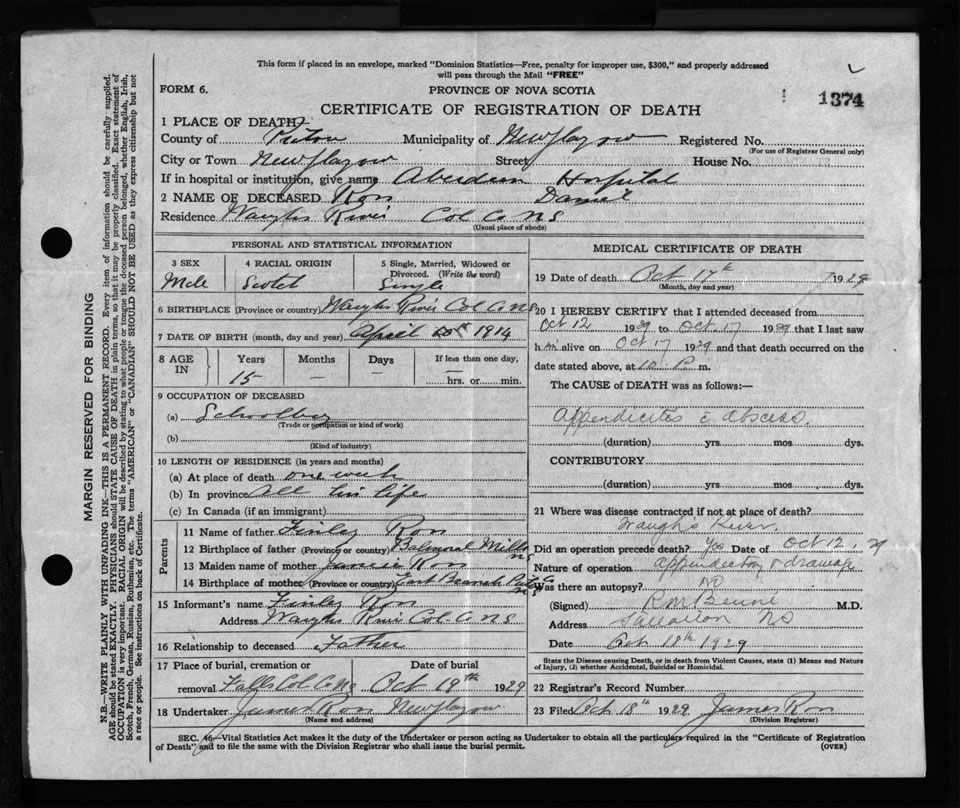 This form if placed in an envelope, marked "Dominion Statistics—Free, penalty for improper use, $300," and properly addressed
will pass through the Mail "FREE"
FORM 6.
PROVINCE OF NOVA SCOTIA
1374
CERTIFICATE OF REGISTRATION OF DEATH
1 PLACE OF DEATH
County of Pictou Municipality of New Glasgow Registered No.
(For use of Registrar General only)
City or Town New Glasgow Street House No.
If in hospital or institution, give name Aberdeen Hospital
2 NAME OF DECEASED Ross Daniel
Residence Waughs River Col Co NS
(Usual place of abode)
PERSONAL AND STATISTICAL INFORMATION
3 SEX 4 RACIAL ORIGIN 5 Single, Married, Widowed or
Divorced. (Write the word)
Male Scotch Single
6 BIRTHPLACE (Province or country) Waughs River Col Co NS
7 DATE OF BIRTH (month, day and year) April 1914
8 AGE IN Years Months Days If less than one day,
15 — — hrs. or min.
9 OCCUPATION OF DECEASED
(a) Schoolboy
(Trade or occupation or kind of work)
(b)
(Kind of industry)
10 LENGTH OF RESIDENCE (in years and months)
(a) At place of death one week
(b) In province All his life
(c) In Canada (if an immigrant)
Parents
11 Name of father Finlay Ross
12 Birthplace of father (Province or country) Balmoral Mills NS
13 Maiden name of mother Ross
14 Birthplace of mother (Province or country) East Branch
15 Informant's name Finlay Ross
Address Waughs River Col Co NS
16 Relationship to deceased Father
17 Place of burial, cremation or Date of burial
removal Falls Col Co NS Oct 19th 1929
18 Undertaker James Ross New Glasgow
(Name and address)
MEDICAL CERTIFICATE OF DEATH
19 Date of death Oct 17th 1929
(Month, day and year)
20 I HEREBY CERTIFY that I attended deceased from
Oct 12 1929 to Oct 17 1929 that I last saw
him alive on Oct 17 1929 and that death occurred on the
date stated above, at 10 P. m.
The CAUSE OF DEATH was as follows:—
Appendicitis c abscess
(duration) yrs. mos. dys.
CONTRIBUTORY
(duration) yrs. mos. dys.
21 Where was disease contracted if not at place of death?
Waughs River.
Did an operation precede death? Yes Date of Oct 12, 29
Nature of operation appendectomy & drainage
Was there an autopsy? No
(Signed) M.D.
Address Stellarton NS
Date Oct 18th 1929
State the Disease causing Death, or in death from Violent Causes, state (1) Means and Nature
of Injury, (2) whether Accidental, Suicidal or Homicidal.
22 Registrar's Record Number
23 Filed Oct 18th 1929 James Ross
(Division Registrar)
SEC. 46—Vital Statistics Act makes it the duty of the Undertaker or person acting as Undertaker to obtain all the particulars required in the "Certificate of Registration
of Death" and to file the same with the Division Registrar who shall issue the burial permit.
(OVER)
MARGIN RESERVED FOR BINDING
N.B.—WRITE PLAINLY WITH UNFADING INK—THIS IS A PERMANENT RECORD. Every item of information should be carefully supplied.
AGE should be stated EXACTLY. PHYSICIANS should STATE CAUSE OF DEATH in plain terms, so that it may be properly classified. Exact statement of
OCCUPATION is very important. RACIAL ORIGIN will be described by stating to what people or tongue the deceased person belonged, whether English, Irish,
Scotch, French, German, Russian, Ruthenian, etc. The terms "AMERICAN" or "CANADIAN" SHOULD NOT BE USED as they express citizenship but not
a race or people. See instructions on back of Certificate.